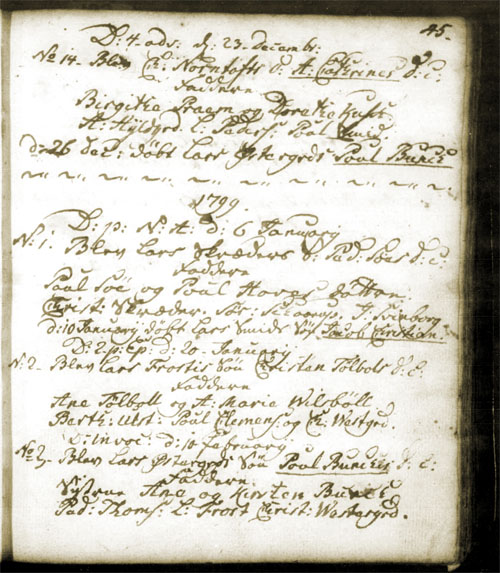 45.
D: 4. adv: d: 23. Decembr:
No 14. Blev Ch: Norntofts D: A: Cathrines d: C:
Faddere
Birgitha Praem og Dorethe
A: Hyldgrd. L: Peders: Poul Smid.
d: 26 Dec: døbt Lars Østergrds Poul Bunck
1799.
D: p: N: A: d: 6 January
N: 1. Blev Lars Skræders S: Pad: Søes d: C:
Faddere
Poul Søe og Poul
Christ: Skræder.
d: 10 January døbt Lars Smids Søn Jacob Christian.
D: 2 p: Ep: d: 20 January
N: 2. Blev Lars Frostis Søn Christan Tølbøls d: C:
Faddere
Ane Tølbøll og A: Maria Wilsbøll
Barth: West: Poul Clemens: og Ch: Westgrd.
D: Invoc: d: 10 February.
No 3. Blev Lars Østergrds Søn Poul Bunckes d: C:
Faddere
Ane og Kirsten Bunck
Pad: Thoms: L: Frost Christ: Westergrd.